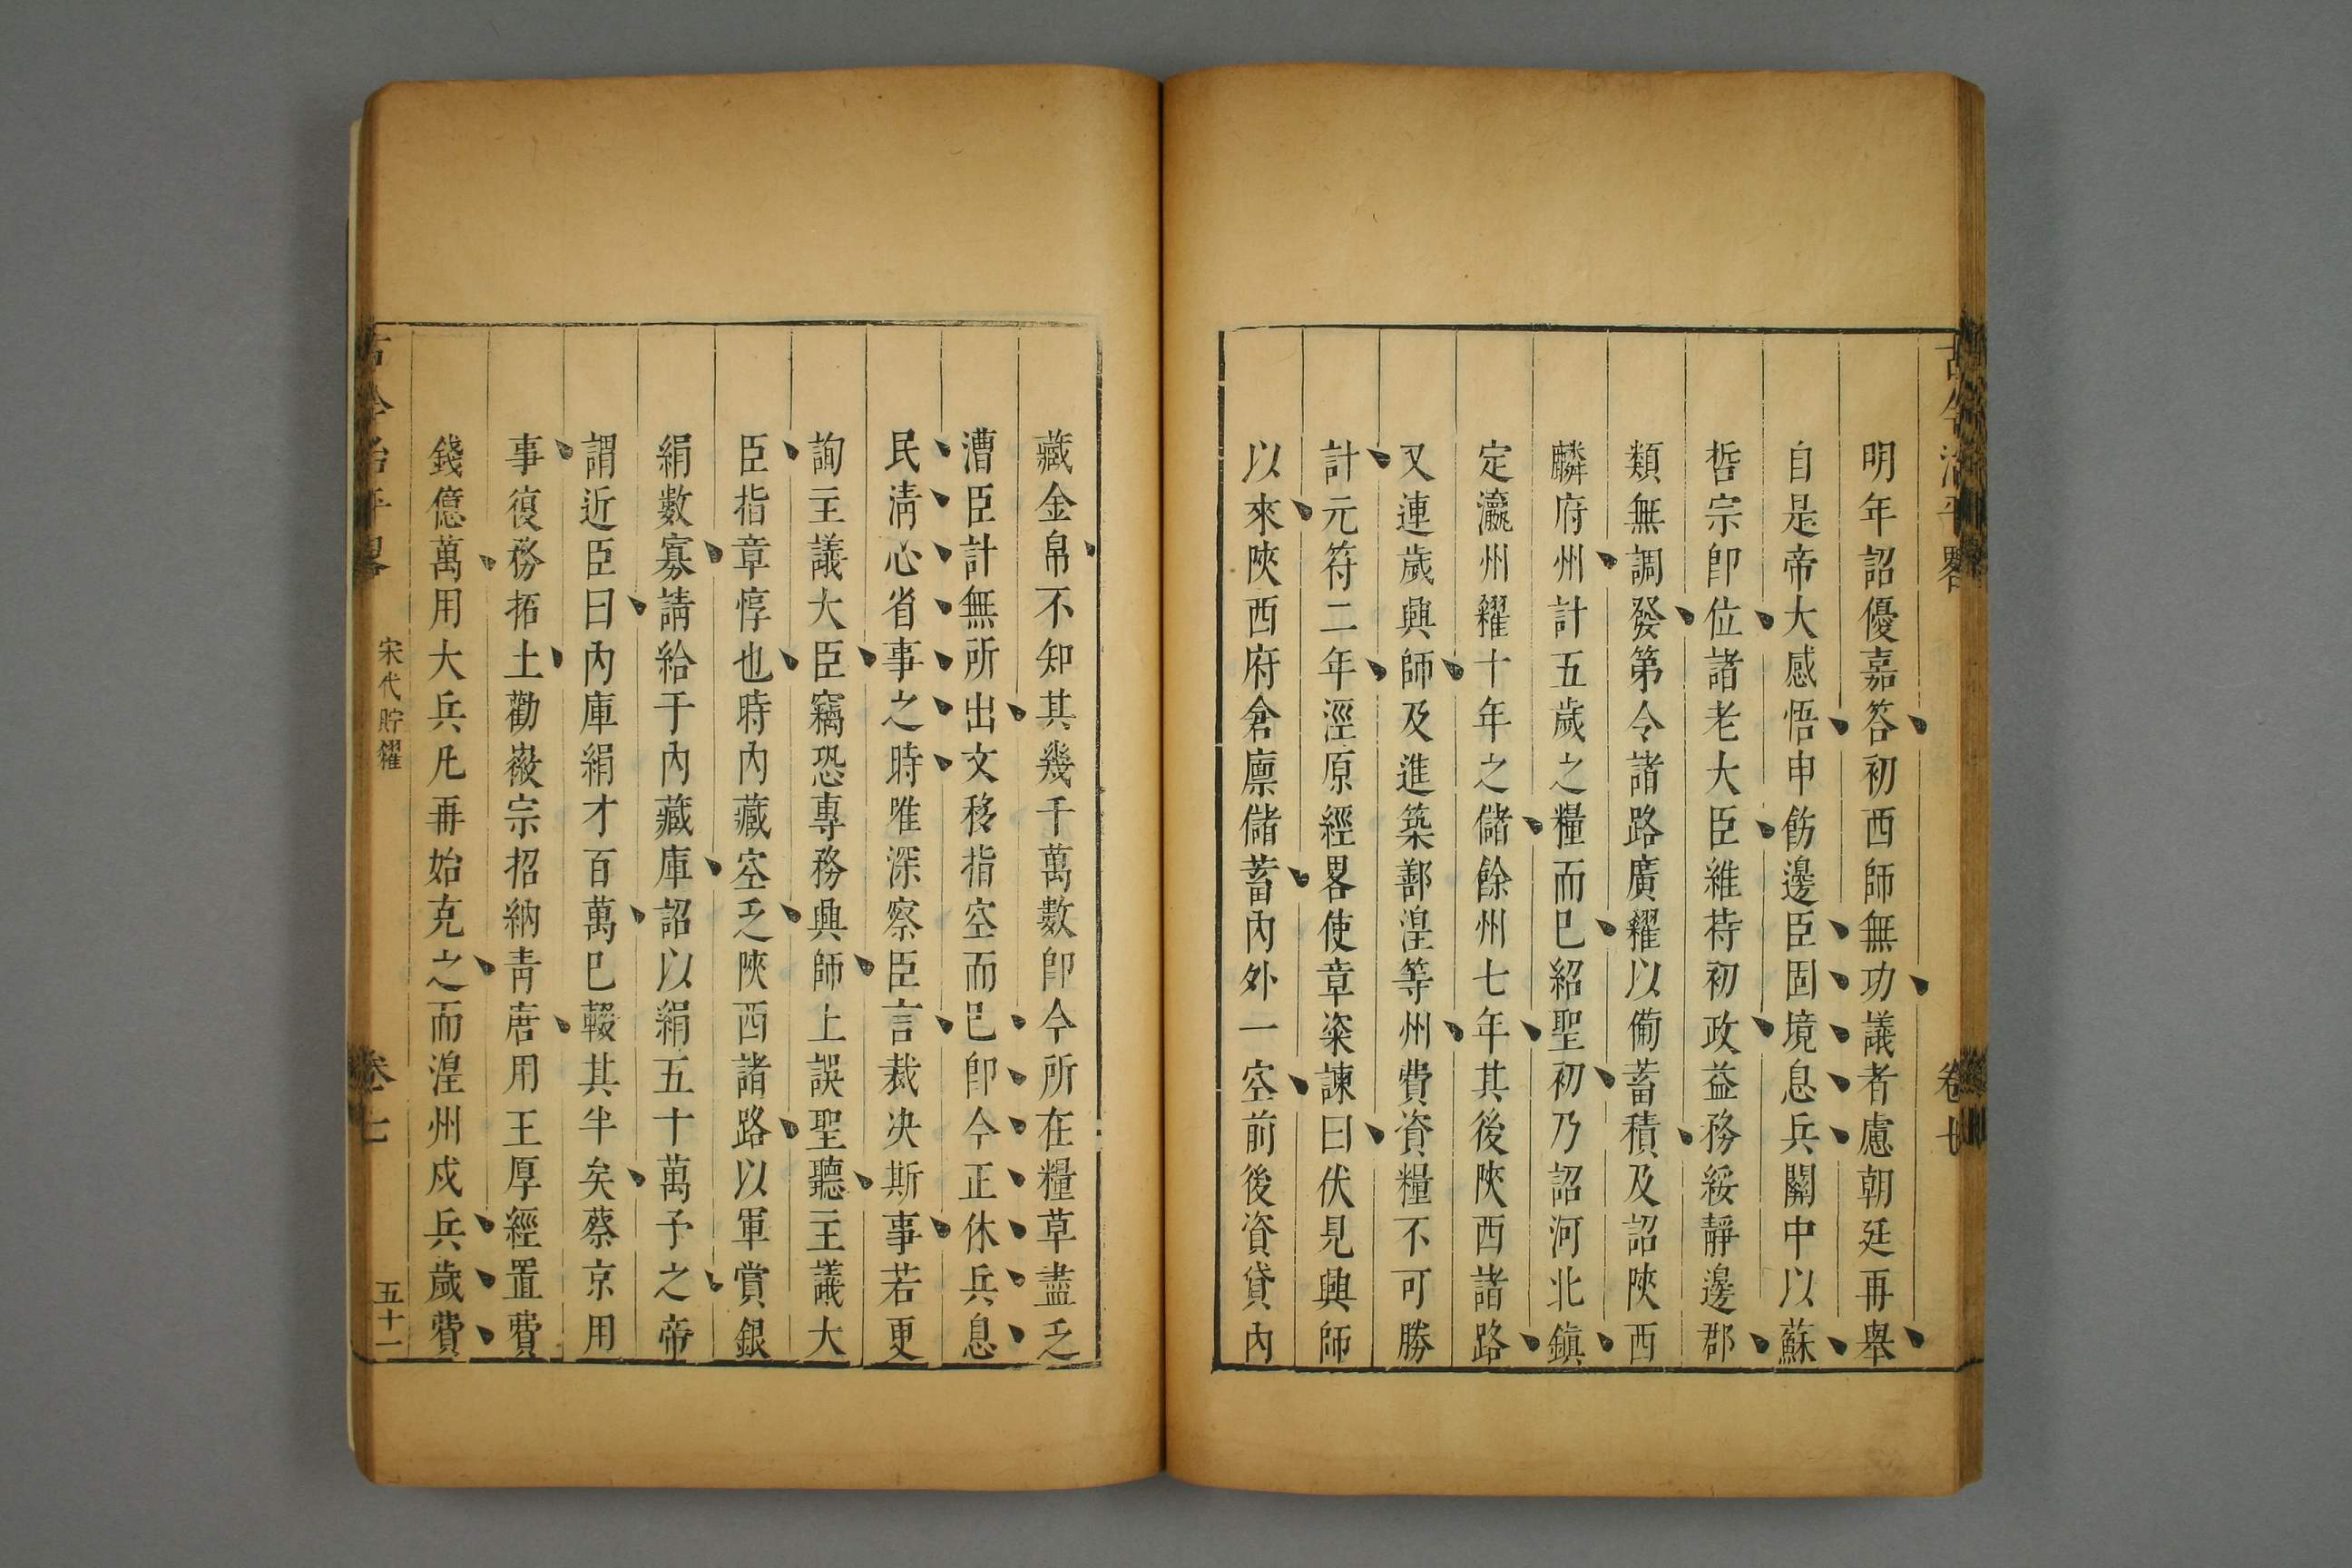 古今治平畧
卷七
明年詔優嘉答初西師無功議者慮朝廷再舉
自是帝大感悟申飭邊臣固境息兵關中以蘇
哲宗卽位諸老大臣維持初政益務綏靜邊郡
類無調發第令諸路廣糴以備蓄積及詔陝西
麟府州計五歲之糧而已紹聖初乃詔河北鎮
定瀛州糴十年之儲餘州七年其後陝西諸路
又連歲興師及進築鄯湟等州費資糧不可勝
計元符二年涇原經畧使章楶諫曰伏見興師
以來陝西府倉廩儲蓄內外一空前後資貸內
藏金帛不知其幾千萬數卽今所在糧草盡乏
漕臣計無所出文移指空而已卽今正休兵息
民淸心省事之時唯深察臣言裁決斯事若更
詢主議大臣竊恐專務興師上誤聖聽主議大
臣指章惇也時內藏空乏陝西諸路以軍賞銀
絹數寡請給于內藏庫詔以絹五十萬予之帝
謂近臣曰內庫絹才百萬已輟其半矣蔡京用
事復務拓土勸徽宗招納靑唐用王厚經置費
錢億萬用大兵凡再始克之而湟州戍兵歲費
古今治平畧
宋代貯糴
卷七
五十一